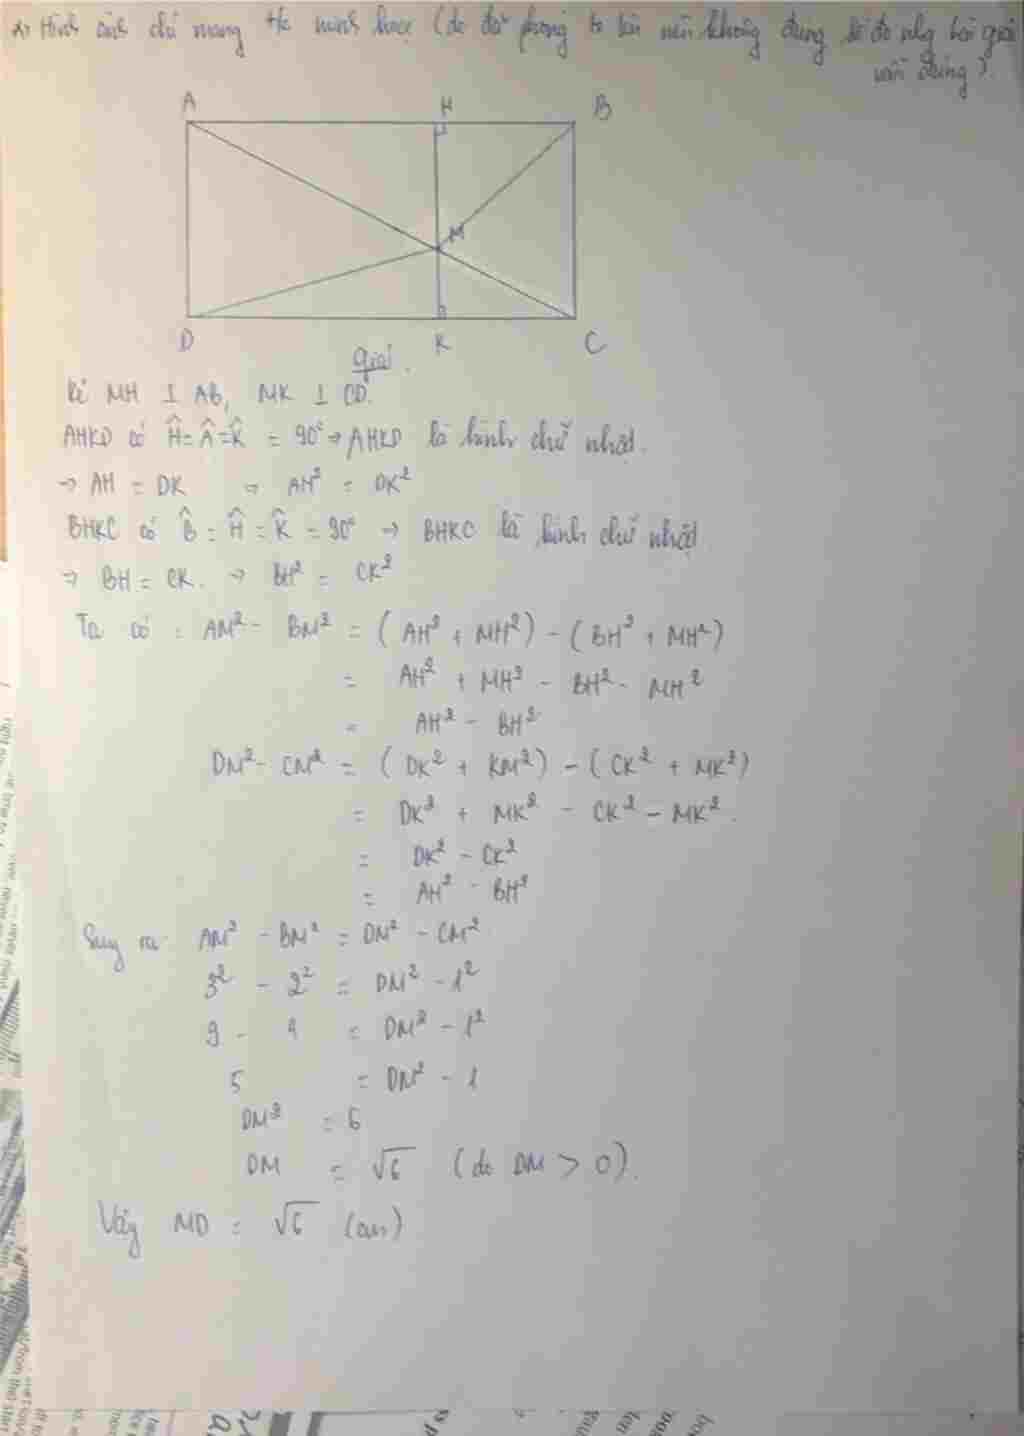 Hình ảnh chỉ mang t/c minh hoạ (do đã phóng to lên nên không đúng số đo nhg bài giải
vẫn đúng).
A H B
M
D K C
Giải
Kẻ MH ⊥ AB, MK ⊥ CD.
AHKD có Ĥ = Â = K̂ = 90° → AHKD là hình chữ nhật.
→ AH = DK → AH² = DK²
BHKC có B̂ = Ĥ = K̂ = 90° → BHKC là hình chữ nhật
→ BH = CK. → BH² = CK²
Ta có : AM² - BM² = (AH² + MH²) - (BH² + MH²)
= AH² + MH² - BH² - MH²
= AH² - BH²
DM² - CM² = (DK² + KM²) - (CK² + MK²)
= DK² + MK² - CK² - MK².
= DK² - CK²
= AH² - BH²
Suy ra AM² - BM² = DM² - CM²
3² - 2² = DM² - 1²
9 - 4 = DM² - 1²
5 = DM² - 1
DM² = 6
DM = √6 (do DM > 0).
Vậy MD = √6 (cm)